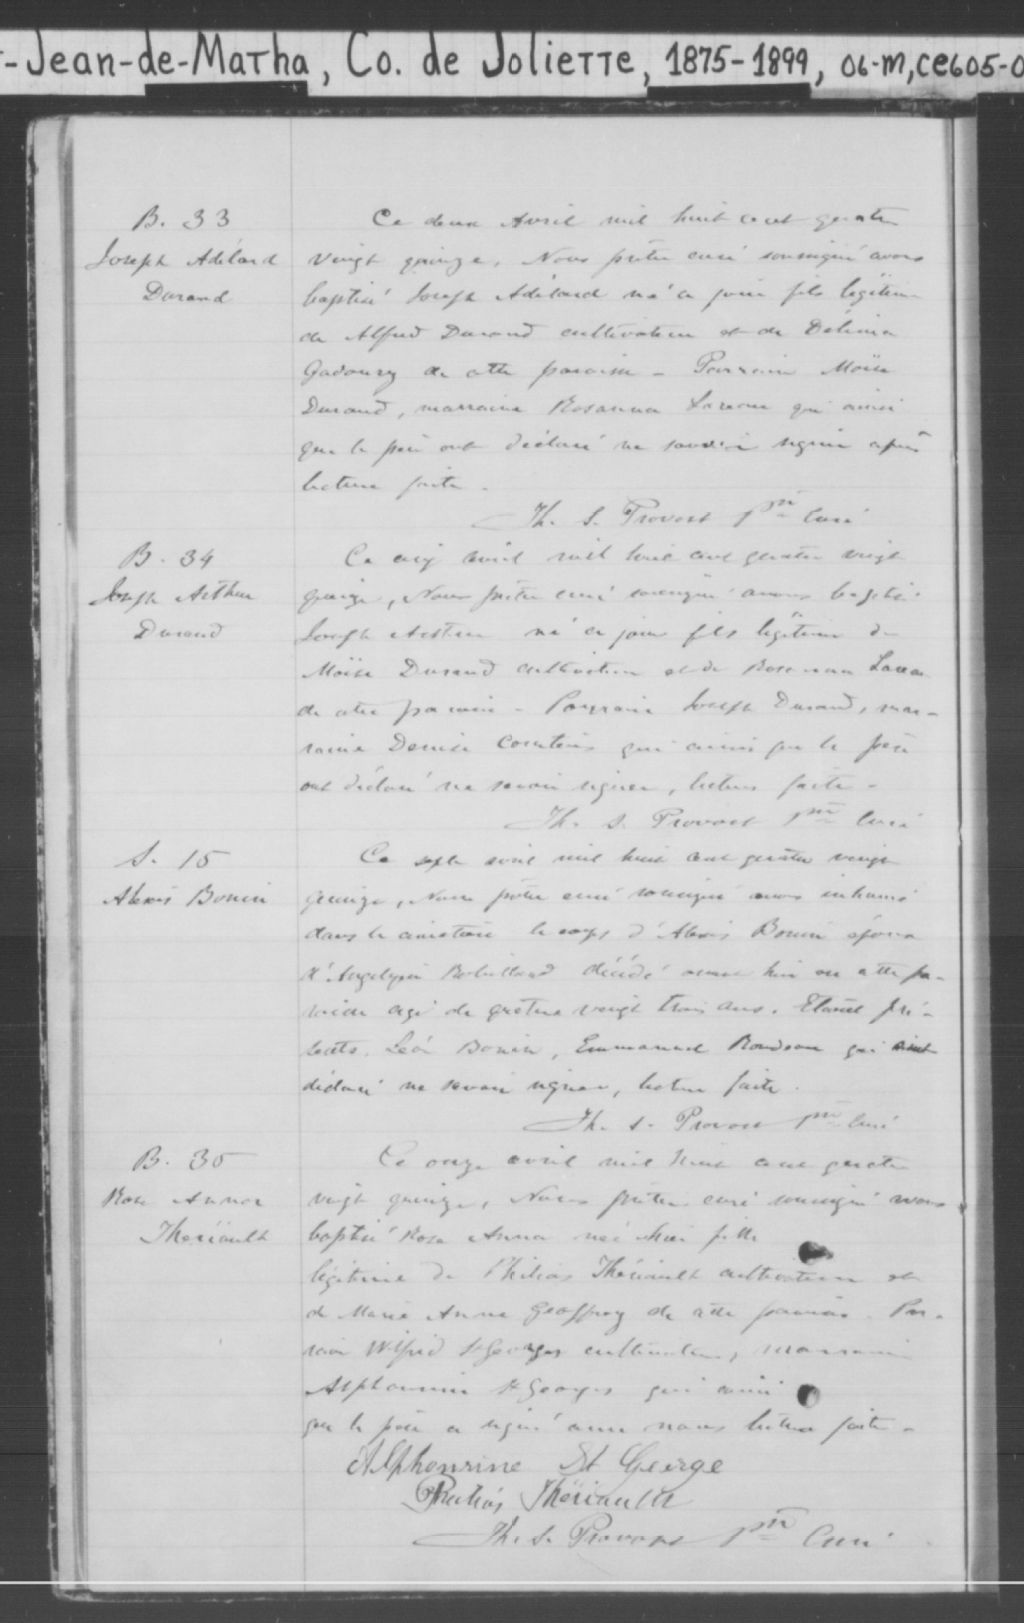 -Jean-de-Matha, Co. de Joliette, 1875-1899, 06-M, CE605-0
B. 33
Joseph Adélard
Durand
Ce deux Avril mil huit cent quatre
vingt quinze, Nous prêtre curé soussigné avons
baptisé Joseph Adélard né ce jour fils légitime
de Alfred Durand cultivateur et de Délima
Gadoury de cette paroisse - Parrain Moïse
Durand, marraine Rosanna Lareau qui ainsi
que le père ont déclaré ne savoir signer après
lecture faite.
Th. S. Provost Ptre Curé
B. 34
Joseph Arthur
Durand
Ce cinq avril mil huit cent quatre vingt
quinze, Nous prêtre curé soussigné avons baptisé
Joseph Arthur né ce jour fils légitime de
Moïse Durand cultivateur et de Rosanna Lareau
de cette paroisse - Parrain Joseph Durand, mar-
raine Denise Comtois qui ainsi que le père
ont déclaré ne savoir signer, lecture faite -
Th. S. Provost Ptre Curé
S. 15
Alexis Bonin
Ce sept avril mil huit cent quatre vingt
quinze, Nous prêtre curé soussigné avons inhumé
dans le cimetière le corps d'Alexis Bonin époux
d'Angelique Robillard décédé avant hier en cette pa-
roisse agé de quatre vingt trois ans. Etaient pré-
sents Léon Bonin, Emmanuel Rondeau qui ont
déclaré ne savoir signer, lecture faite.
Th. S. Provost Ptre Curé
B. 35
Rose Anna
Theriault
Ce onze avril mil huit cent quatre
vingt quinze, Nous prêtre curé soussigné avons
baptisé Rose Anna née hier fille
légitime de Philias Thériault cultivateur et
de Marie Anne Geoffroy de cette paroisse. Par-
rain Wilfrid St Georges cultivateur, marraine
Alphonsine St Georges qui ainsi
que le père a signé avec nous lecture faite -
Alphonsine St George
Philias Thériault
Th. S. Provost Ptre Curé